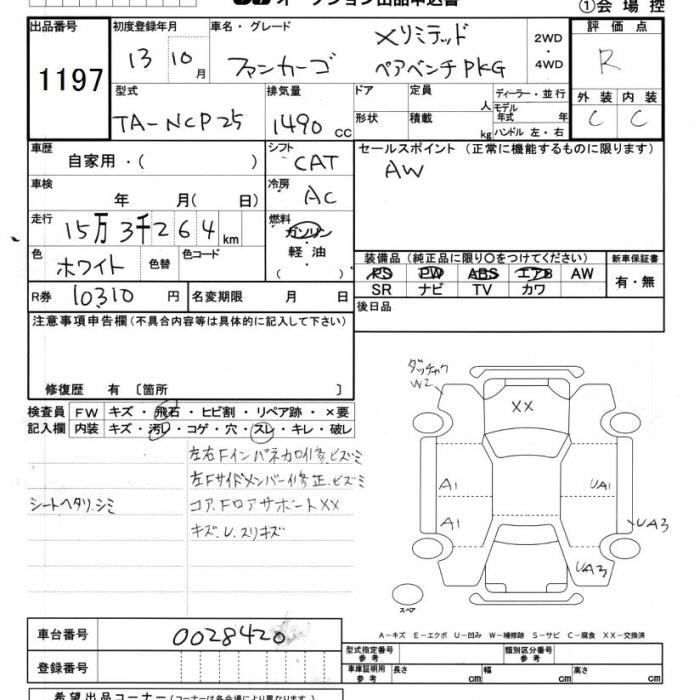 オークション出品申込書
①会場控
出品番号 1197
初度登録年月 13 10月
車名・グレード ファンカーゴ Xリミテッド ペアベンチPKG
2WD・4WD
評価点 R
外装 C 内装 C
型式 TA-NCP25
排気量 1490 cc
ドア 形状
定員 人
積載 kg
ディーラー・並行
モデル年式 年
ハンドル 左・右
車歴 自家用・( )
シフト CAT
セールスポイント (正常に機能するものに限ります)
AW
車検 年 月( 日)
冷房 AC
走行 15万3千264km
燃料 ガソリン 軽・油 ( )
色 ホワイト 色替 色コード
装備品 (純正品に限り○をつけてください)
新車保証書
PS PW ABS エアB AW
有・無
SR ナビ TV カワ
R券 10310 円 名変期限 月 日
後日品
注意事項申告欄(不具合内容等は具体的に記入して下さい)
修復歴 有 〔箇所 〕
検査員記入欄
FW キズ・飛石・ヒビ割・リペア跡・×要
内装 キズ・汚レ・コゲ・穴・スレ・キレ・破レ
左右Fインパネカロ修.ヒズミ
左Fサイドメンバー修正.ヒズミ
シートヘタリ.シミ
コア.Fロアサポート××
キズ.U.スリキズ
W2
XX
A1 UA1
A1 UA3
UA3
スペア
A-キズ E-エクボ U-凹み W-補修跡 S-サビ C-腐食 XX-交換済
車台番号 0028420
型式指定番号 参考
類別区分番号 参考
登録番号
車庫証明用 参考 長さ cm 幅 cm 高さ cm
希望出品コーナー(コーナーは各会場により異なります)